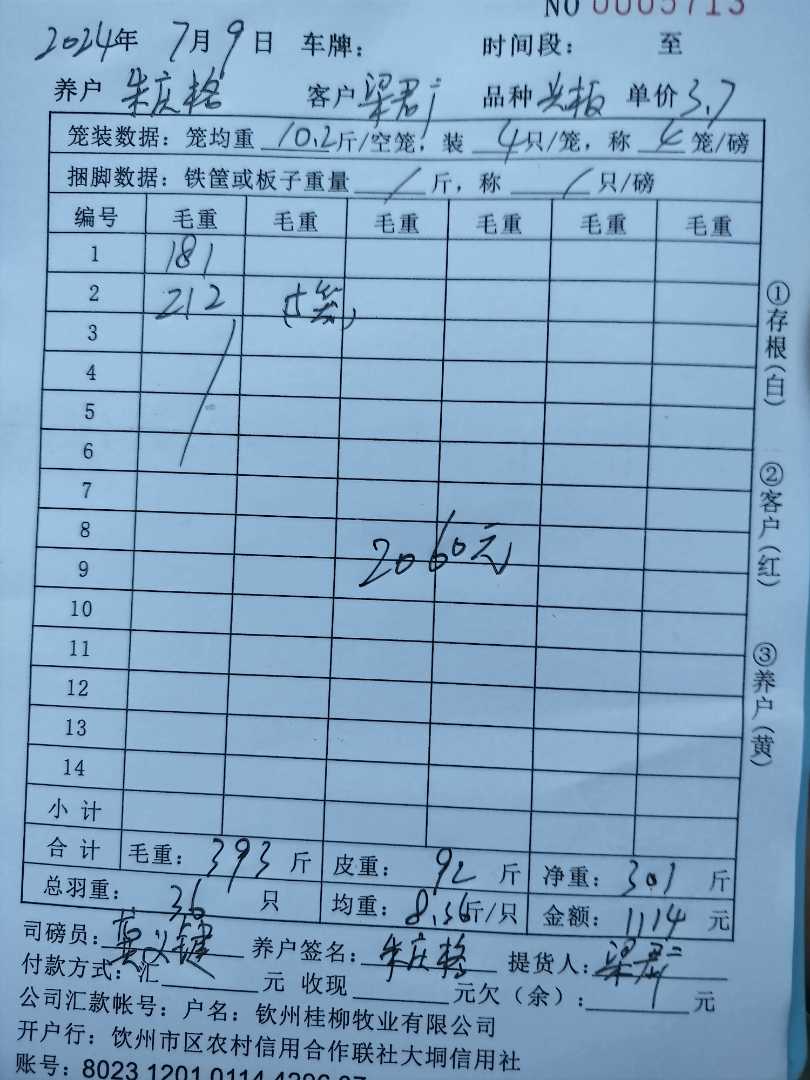 NO 0005713
2024年 7月9日 车牌： 时间段： 至
养户 朱庆格 客户 梁君 品种 单价3.7
笼装数据：笼均重 10.2斤/空笼，装 4只/笼，称 4笼/磅
捆脚数据：铁筐或板子重量 / 斤，称 / 只/磅
编号 毛重 毛重 毛重 毛重 毛重 毛重
1 181
2 212 (5笼)
3
4
5
6
7
8
2060元
9
10
11
12
13
14
小计
合计 毛重：393斤 皮重：92斤 净重：301斤
总羽重：36只 均重：8.36斤/只 金额：1114元
司磅员： 养户签名：朱庆格 提货人：梁君
付款方式：汇 元 收现 元欠（余）： 元
公司汇款帐号：户名：钦州桂柳牧业有限公司
开户行：钦州市区农村信用合作联社大垌信用社
账号：8023 1201 0114
①存根（白）
②客户（红）
③养户（黄）